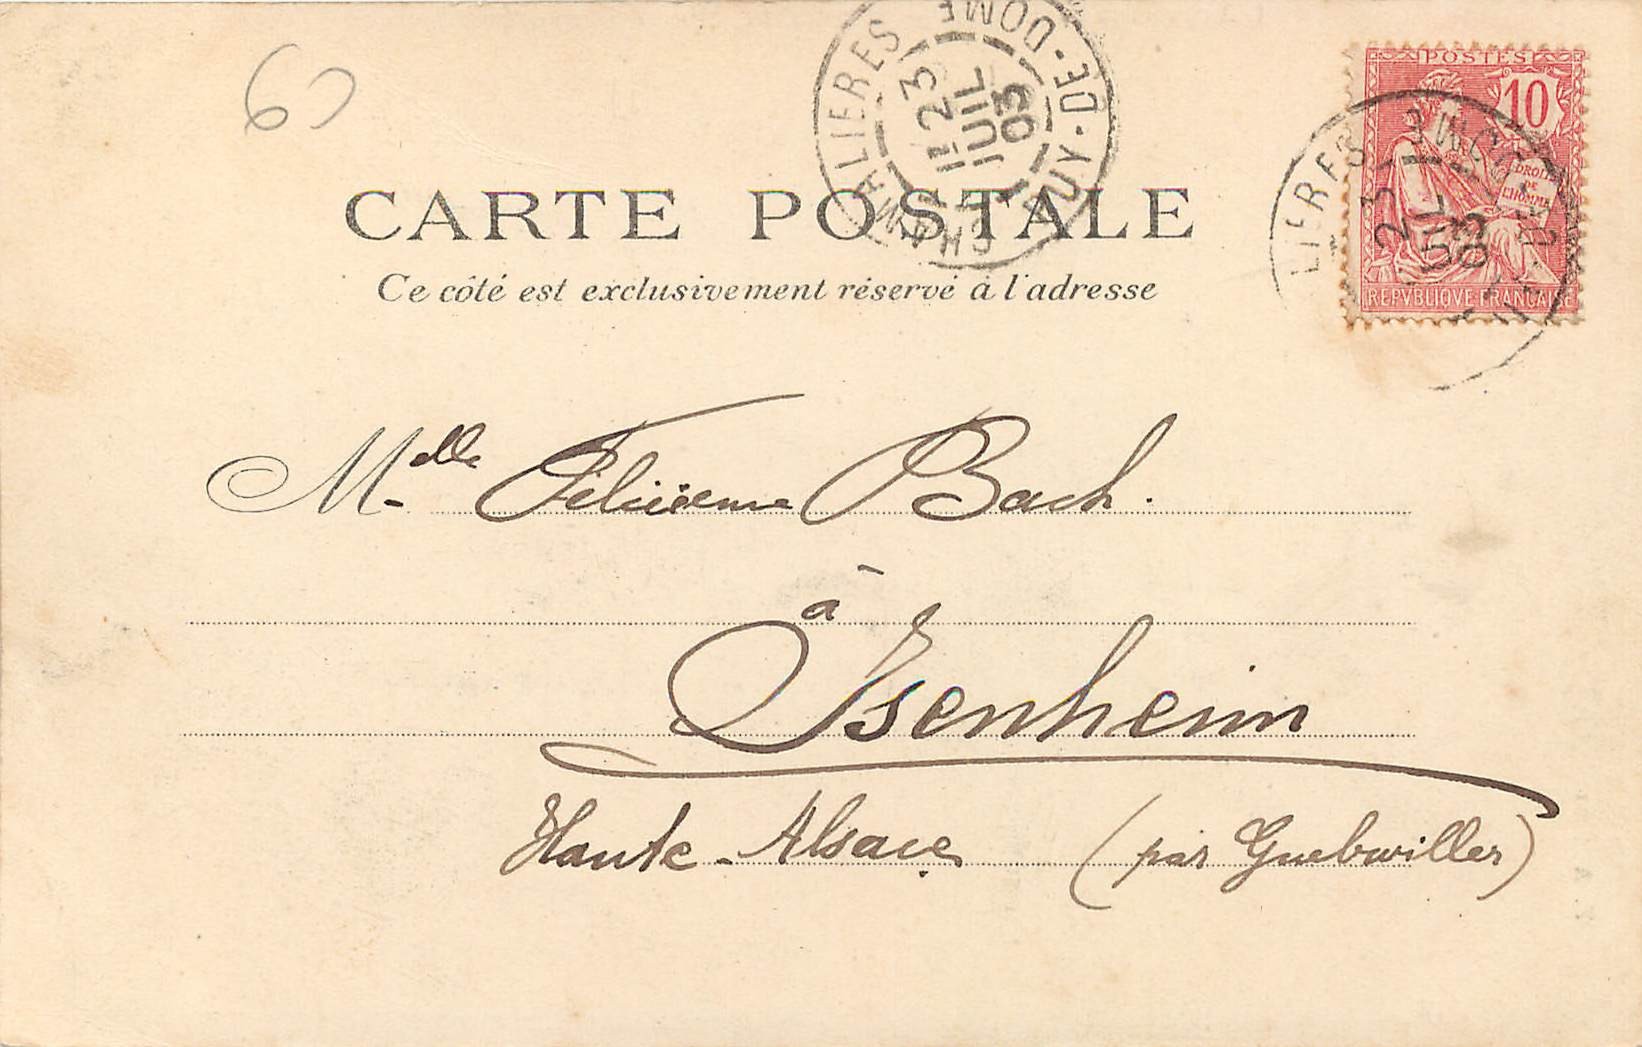 63
CHAMALIERES PUY-DE-DOME
1E 23
JUIL
03
POSTES
10
DROITS
DE
L'HOMME
REPVBLIQVE FRANÇAISE
LIERES
23
JUIL
03
CARTE POSTALE
Ce côté est exclusivement réservé à l'adresse
Melle Félicienne Bach.
à
Isenheim
Haute-Alsace (par Guebwiller)